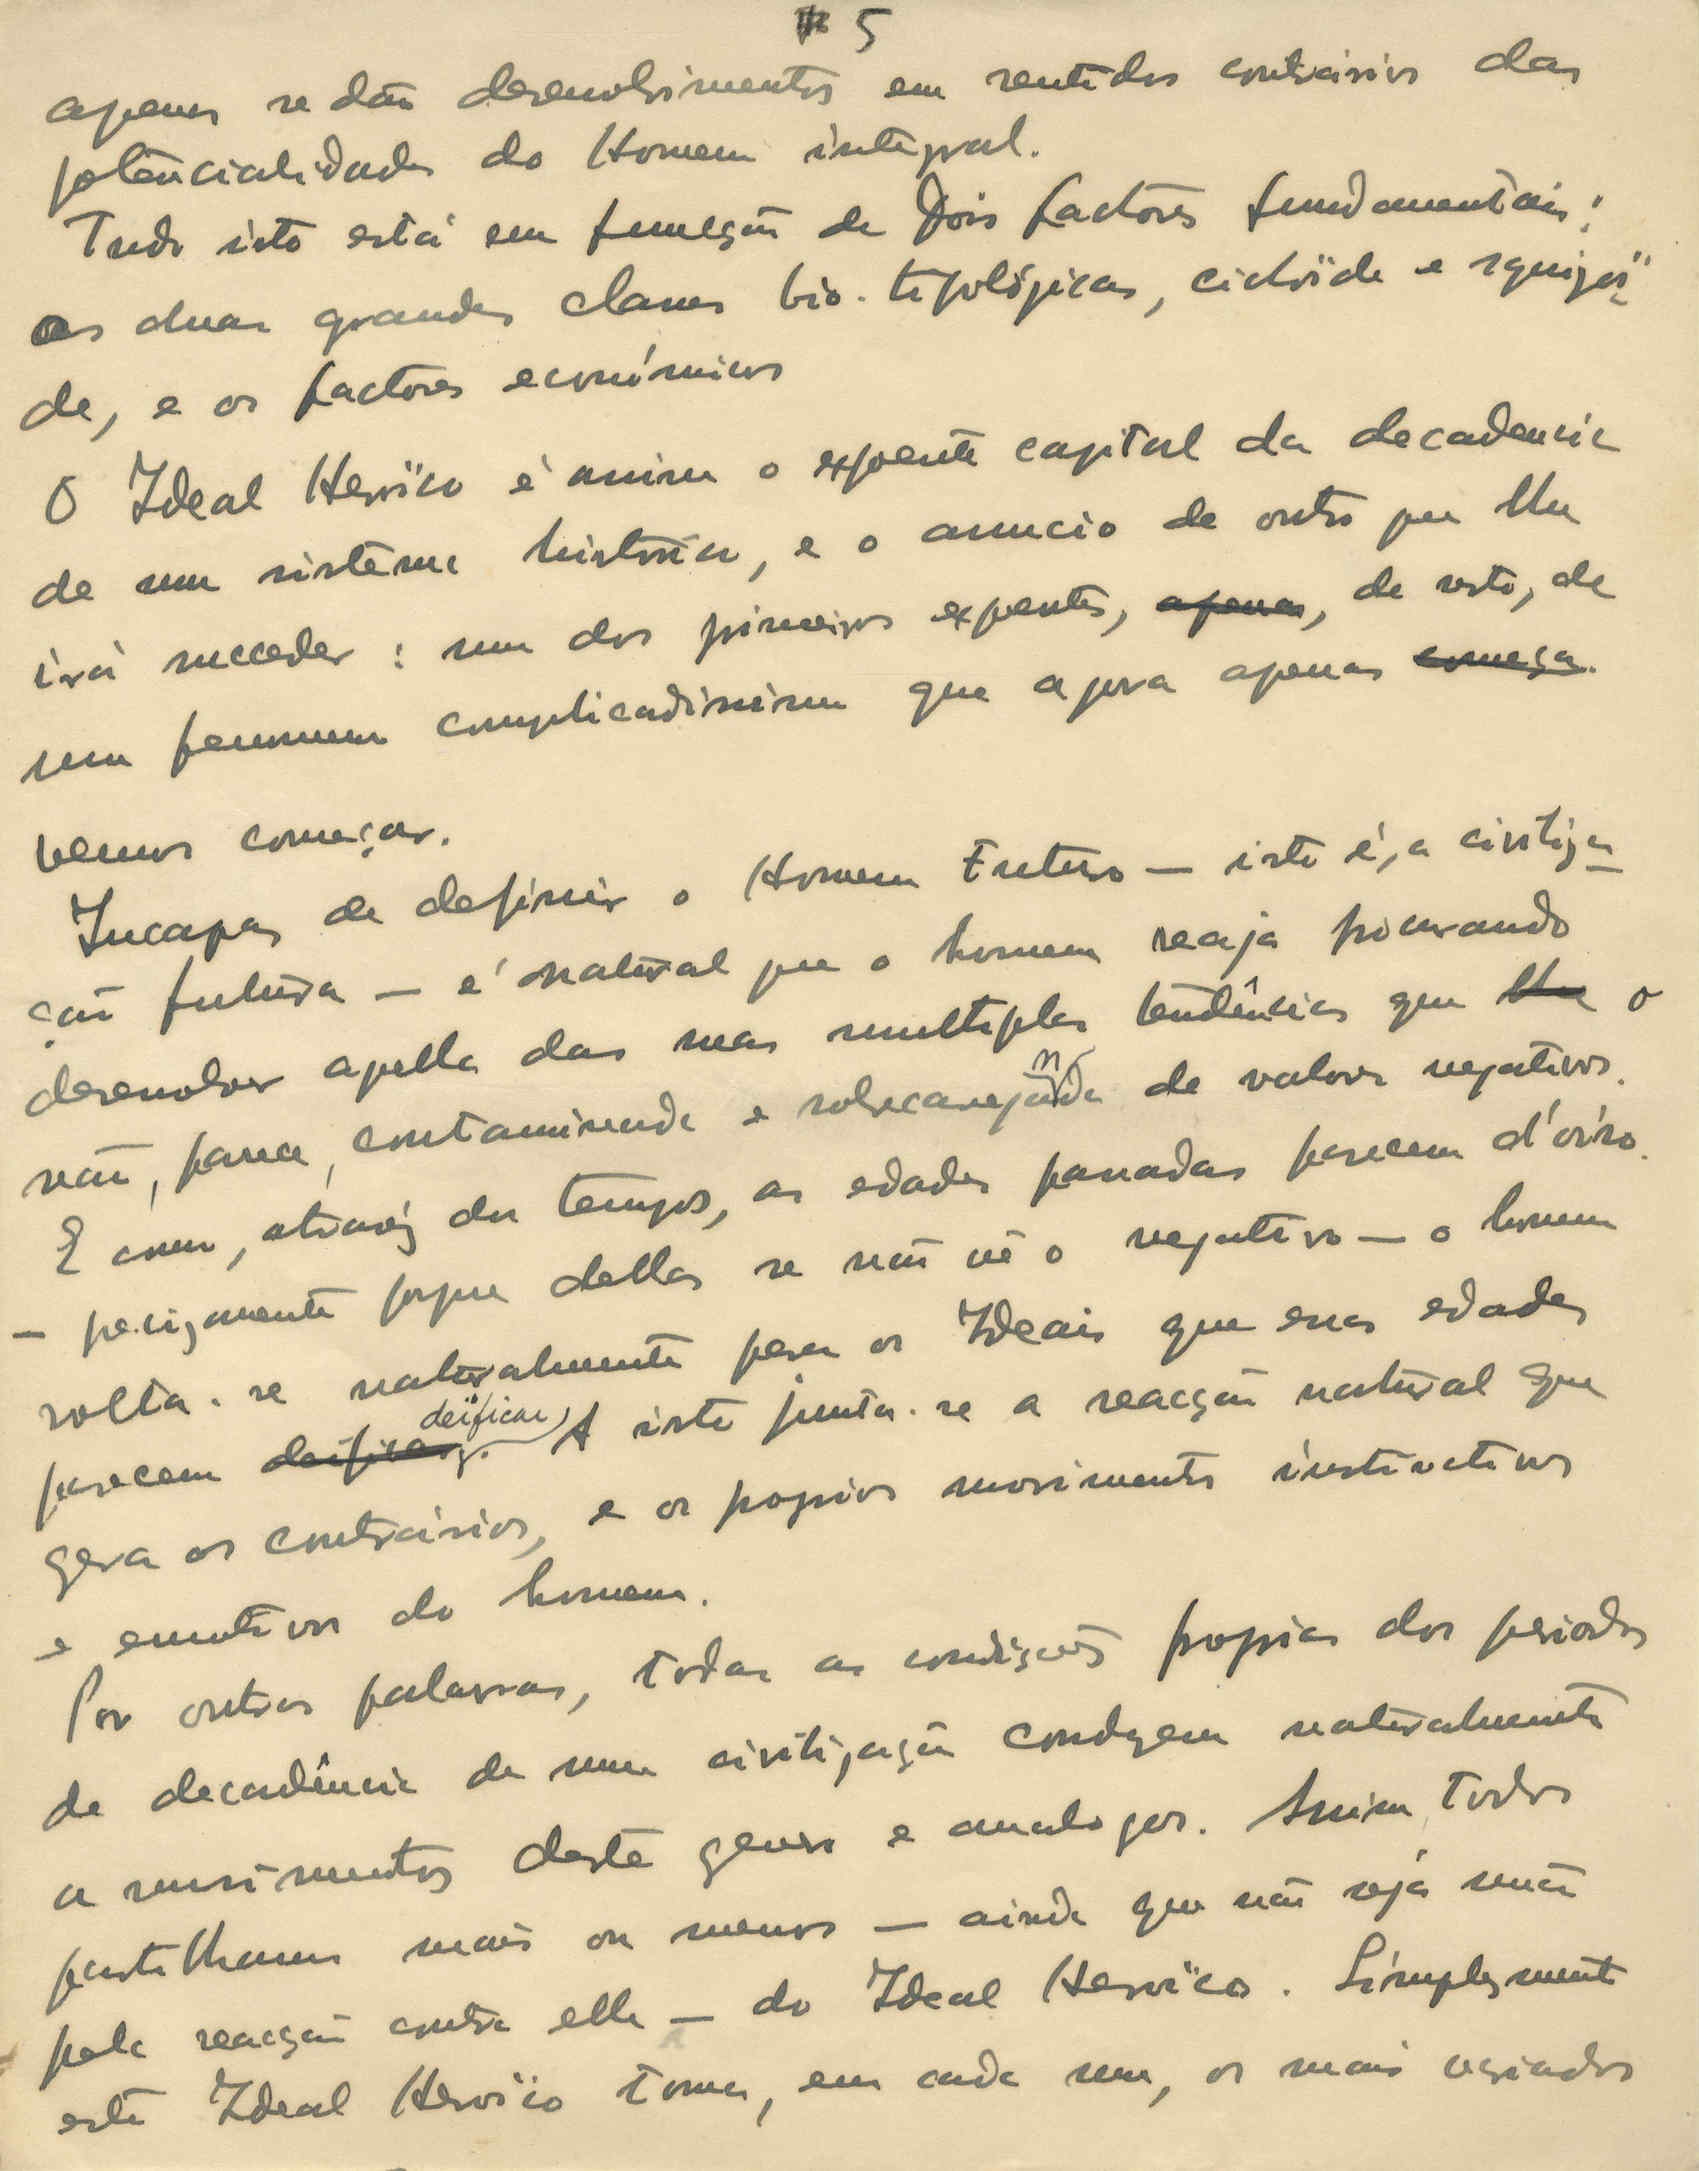 5
apenas se dão desenvolvimentos em sentidos contrários das
potencialidades do Homem integral.
Tudo isto está em funcção de Dois factores fundamentais:
as duas grandes classes bio-tipológicas, ciclóïde e squizói-
de, e os factores económicos
O Ideal Heroïco é assim o expoente capital da decadencia
de um sistema historico, e o anuncio de outro que lhe
irá succeder: um dos primeiros expoentes, apenas, de resto, de
um fenomeno complicadissimo que agora apenas começa.
vemos começar.
Incapaz de definir o Homem Futuro — isto é, a civiliza-
ção futura — é natural que o homem reaja procurando
desenvolver aquella das suas multiplas tendências que lhe o
não, parece, contaminada e sobrecarregada de valores negativos.
E como, atravéz dos tempos, as edades passadas parecem d'óiro
— precizamente porque dellas se não vê o negativo — o homem
volta-se naturalmente para os Ideais que essas edades
deïficar,
parecem deificar. A isto junta-se a reacção natural que
gera os contrários, e os proprios movimentos instinctivos
e emotivos do homem.
Por outras palavras, todas as condições proprias dos periodos
de decadência de uma civilização conduzem naturalmente
a movimentos deste genero e analogos. Assim, todos
partilhamos mais ou menos — ainda que não seja senão
pela reacção contra elle — do Ideal Heroïco. Simplesmente
este Ideal Heroïco toma, em cada um, os mais variados